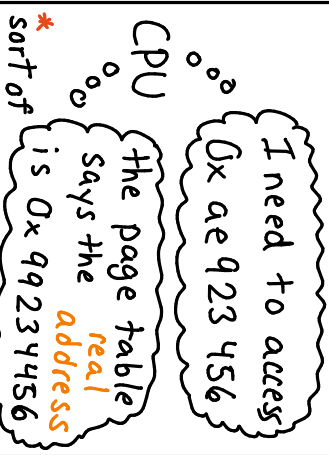 CPU
I need to access
0x ae 923 456
the page table
says the real
address
is 0x 99234456
* sort of